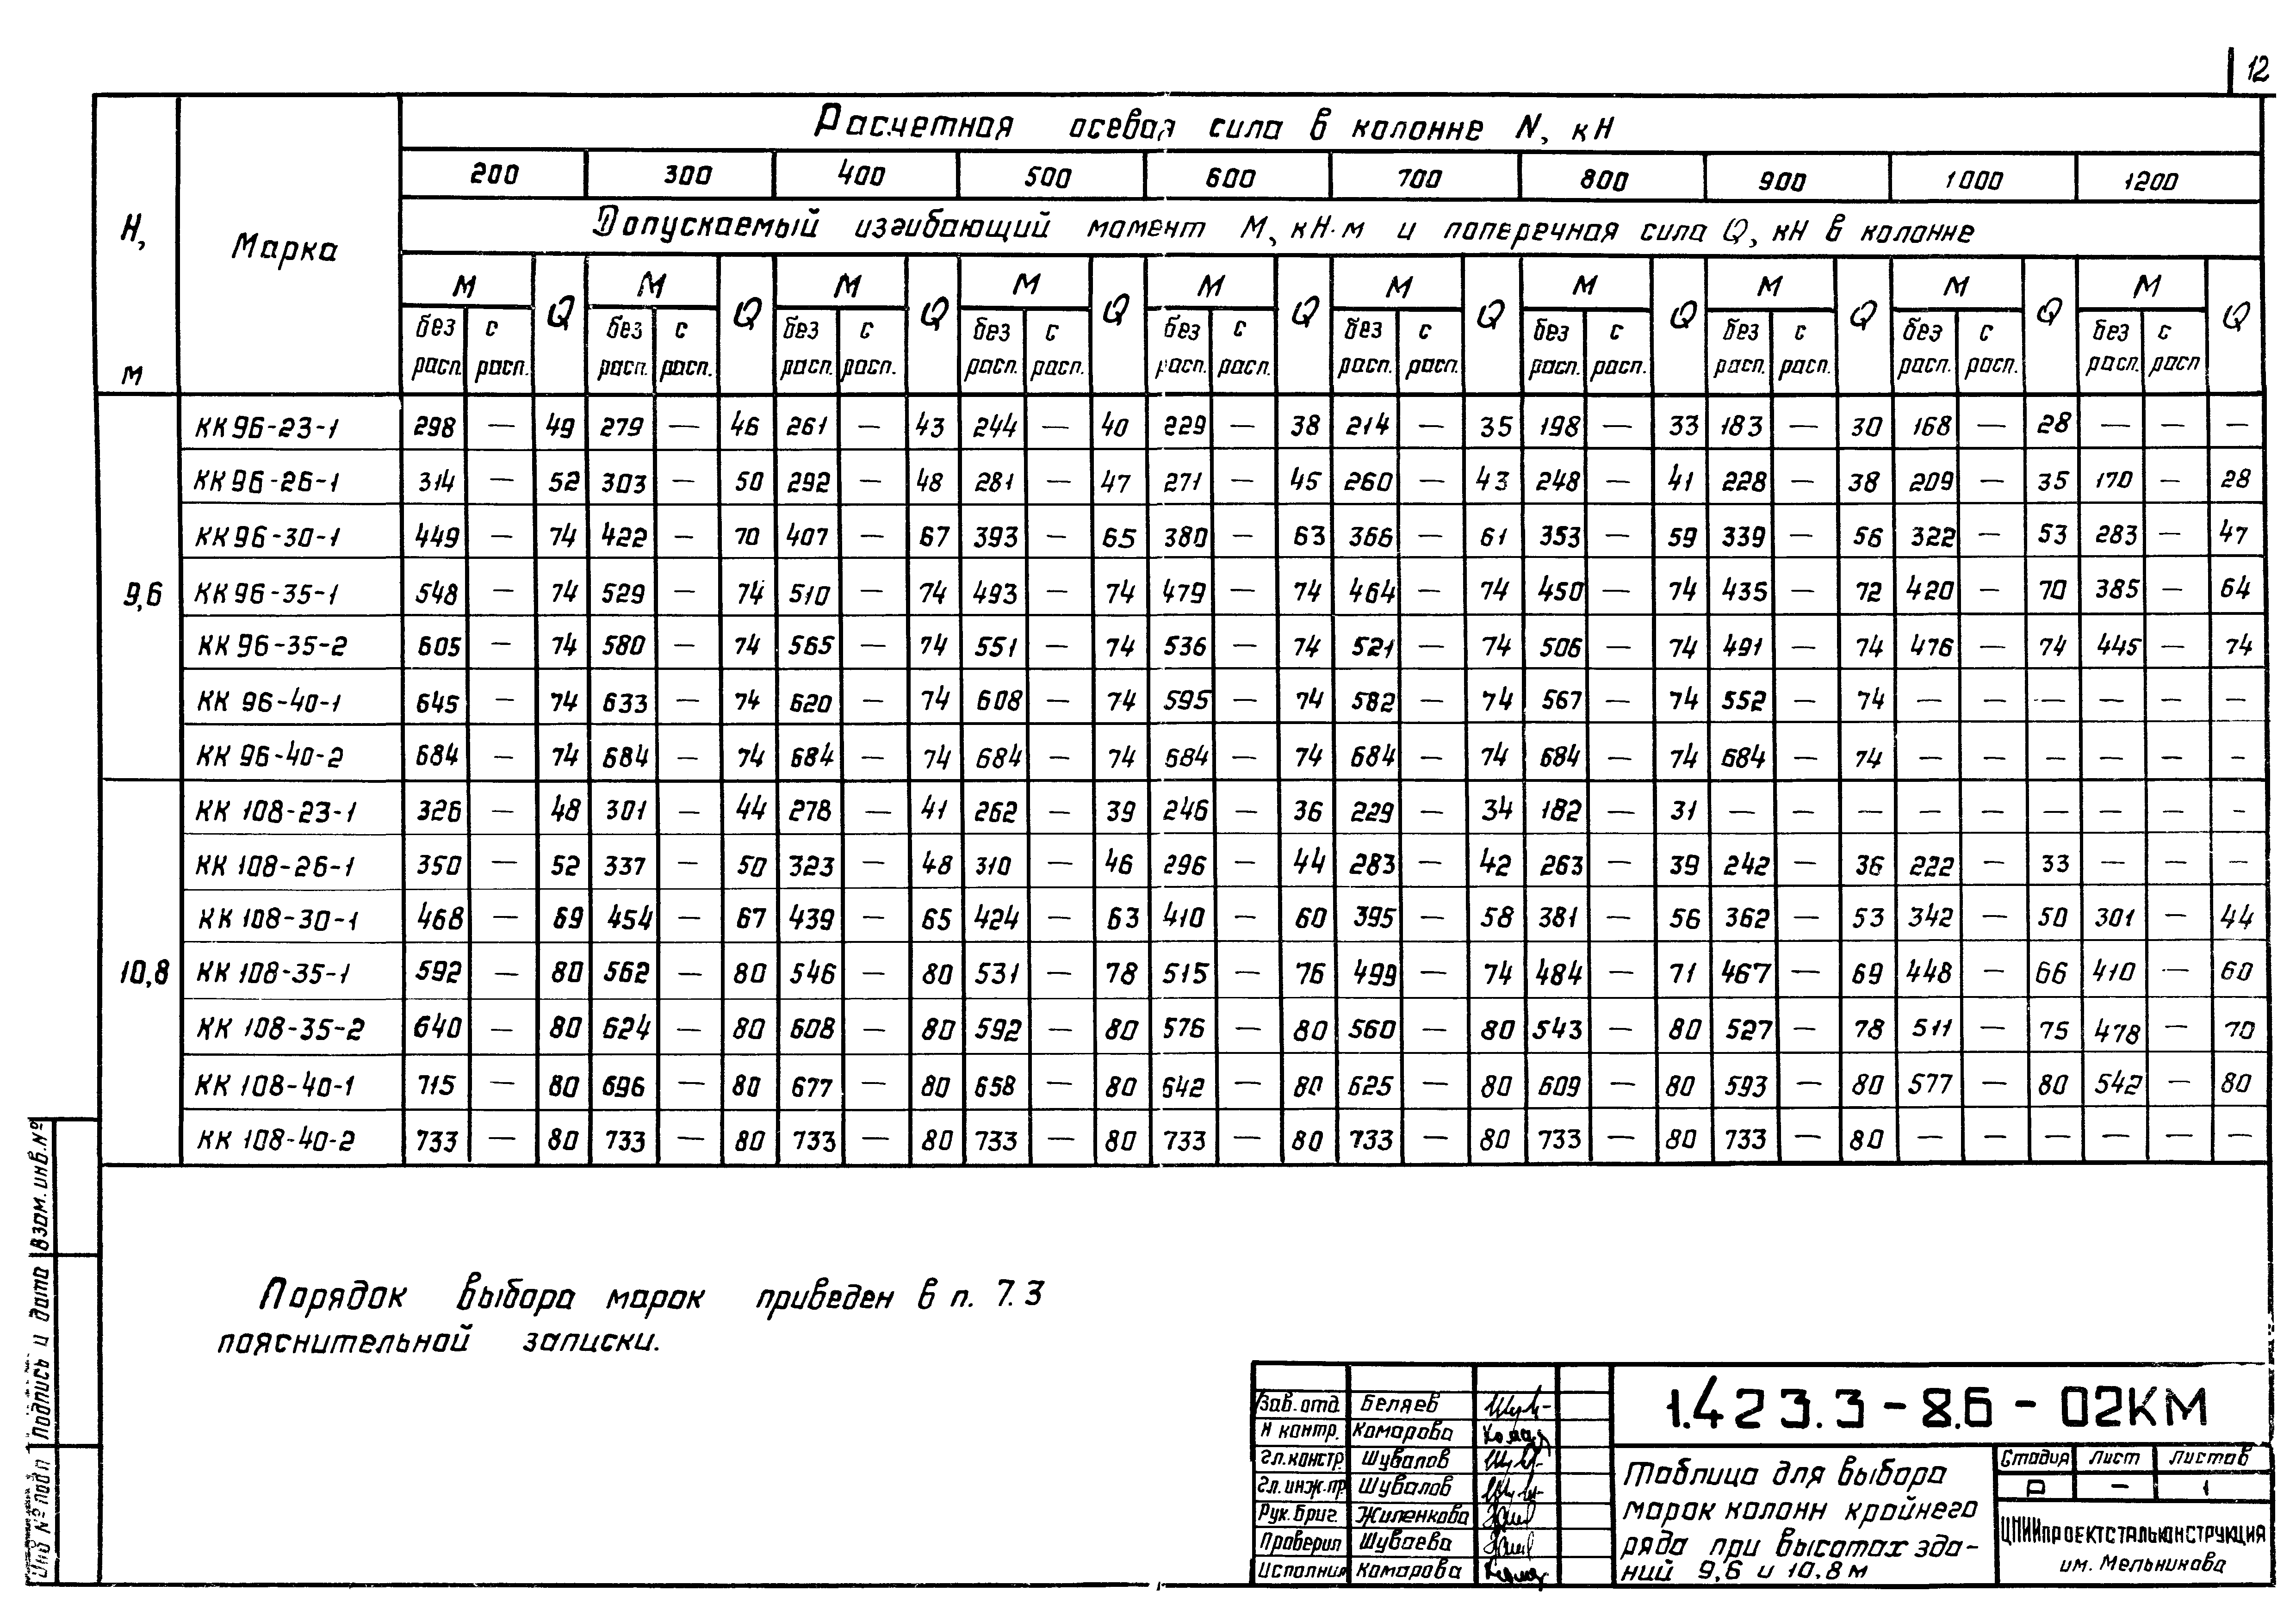 12
Расчетная осевая сила в колонне N, кН
Н, м Марка 200 300 400 500 600 700 800 900 1000 1200
Допускаемый изгибающий момент М, кН·м и поперечная сила Q, кН в колонне
М Q М Q М Q М Q М Q М Q М Q М Q М Q М Q
без расп. с расп. без расп. с расп. без расп. с расп. без расп. с расп. без расп. с расп. без расп. с расп. без расп. с расп. без расп. с расп. без расп. с расп. без расп. с расп
9,6
КК 96-23-1 298 — 49 279 — 46 261 — 43 244 — 40 229 — 38 214 — 35 198 — 33 183 — 30 168 — 28 — — —
КК 96-26-1 314 — 52 303 — 50 292 — 48 281 — 47 271 — 45 260 — 43 248 — 41 228 — 38 209 — 35 170 — 28
КК 96-30-1 449 — 74 422 — 70 407 — 67 393 — 65 380 — 63 366 — 61 353 — 59 339 — 56 322 — 53 283 — 47
КК 96-35-1 548 — 74 529 — 74 510 — 74 493 — 74 479 — 74 464 — 74 450 — 74 435 — 72 420 — 70 385 — 64
КК 96-35-2 605 — 74 580 — 74 565 — 74 551 — 74 536 — 74 521 — 74 506 — 74 491 — 74 476 — 74 445 — 74
КК 96-40-1 645 — 74 633 — 74 620 — 74 608 — 74 595 — 74 582 — 74 567 — 74 552 — 74 — — — — — —
КК 96-40-2 684 — 74 684 — 74 684 — 74 684 — 74 684 — 74 684 — 74 684 — 74 684 — 74 — — — — — —
10,8
КК 108-23-1 326 — 48 301 — 44 278 — 41 262 — 39 246 — 36 229 — 34 182 — 31 — — — — — — — — —
КК 108-26-1 350 — 52 337 — 50 323 — 48 310 — 46 296 — 44 283 — 42 263 — 39 242 — 36 222 — 33 — — —
КК 108-30-1 468 — 69 454 — 67 439 — 65 424 — 63 410 — 60 395 — 58 381 — 56 362 — 53 342 — 50 301 — 44
КК 108-35-1 592 — 80 562 — 80 546 — 80 531 — 78 515 — 76 499 — 74 484 — 71 467 — 69 448 — 66 410 — 60
КК 108-35-2 640 — 80 624 — 80 608 — 80 592 — 80 576 — 80 560 — 80 543 — 80 527 — 78 511 — 75 478 — 70
КК 108-40-1 715 — 80 696 — 80 677 — 80 658 — 80 642 — 80 625 — 80 609 — 80 593 — 80 577 — 80 542 — 80
КК 108-40-2 733 — 80 733 — 80 733 — 80 733 — 80 733 — 80 733 — 80 733 — 80 733 — 80 — — — — — —
Порядок выбора марок приведен в п. 7.3
пояснительной записки.
Взам. инв. №
Подпись и дата
Инв № подл
Зав. отд. Беляев
Н контр. Комарова
Гл. констр. Шувалов
Гл. инж. пр Шувалов
Рук. бриг. Жиленкова
Проверил Шуваева
Исполнил Комарова
1.423.3-8.6-02КМ
Таблица для выбора
марок колонн крайнего
ряда при высотах зда-
ний 9,6 и 10,8 м
Стадия Лист Листов
Р — 1
ЦНИИПРОЕКТСТАЛЬКОНСТРУКЦИЯ
им. Мельникова